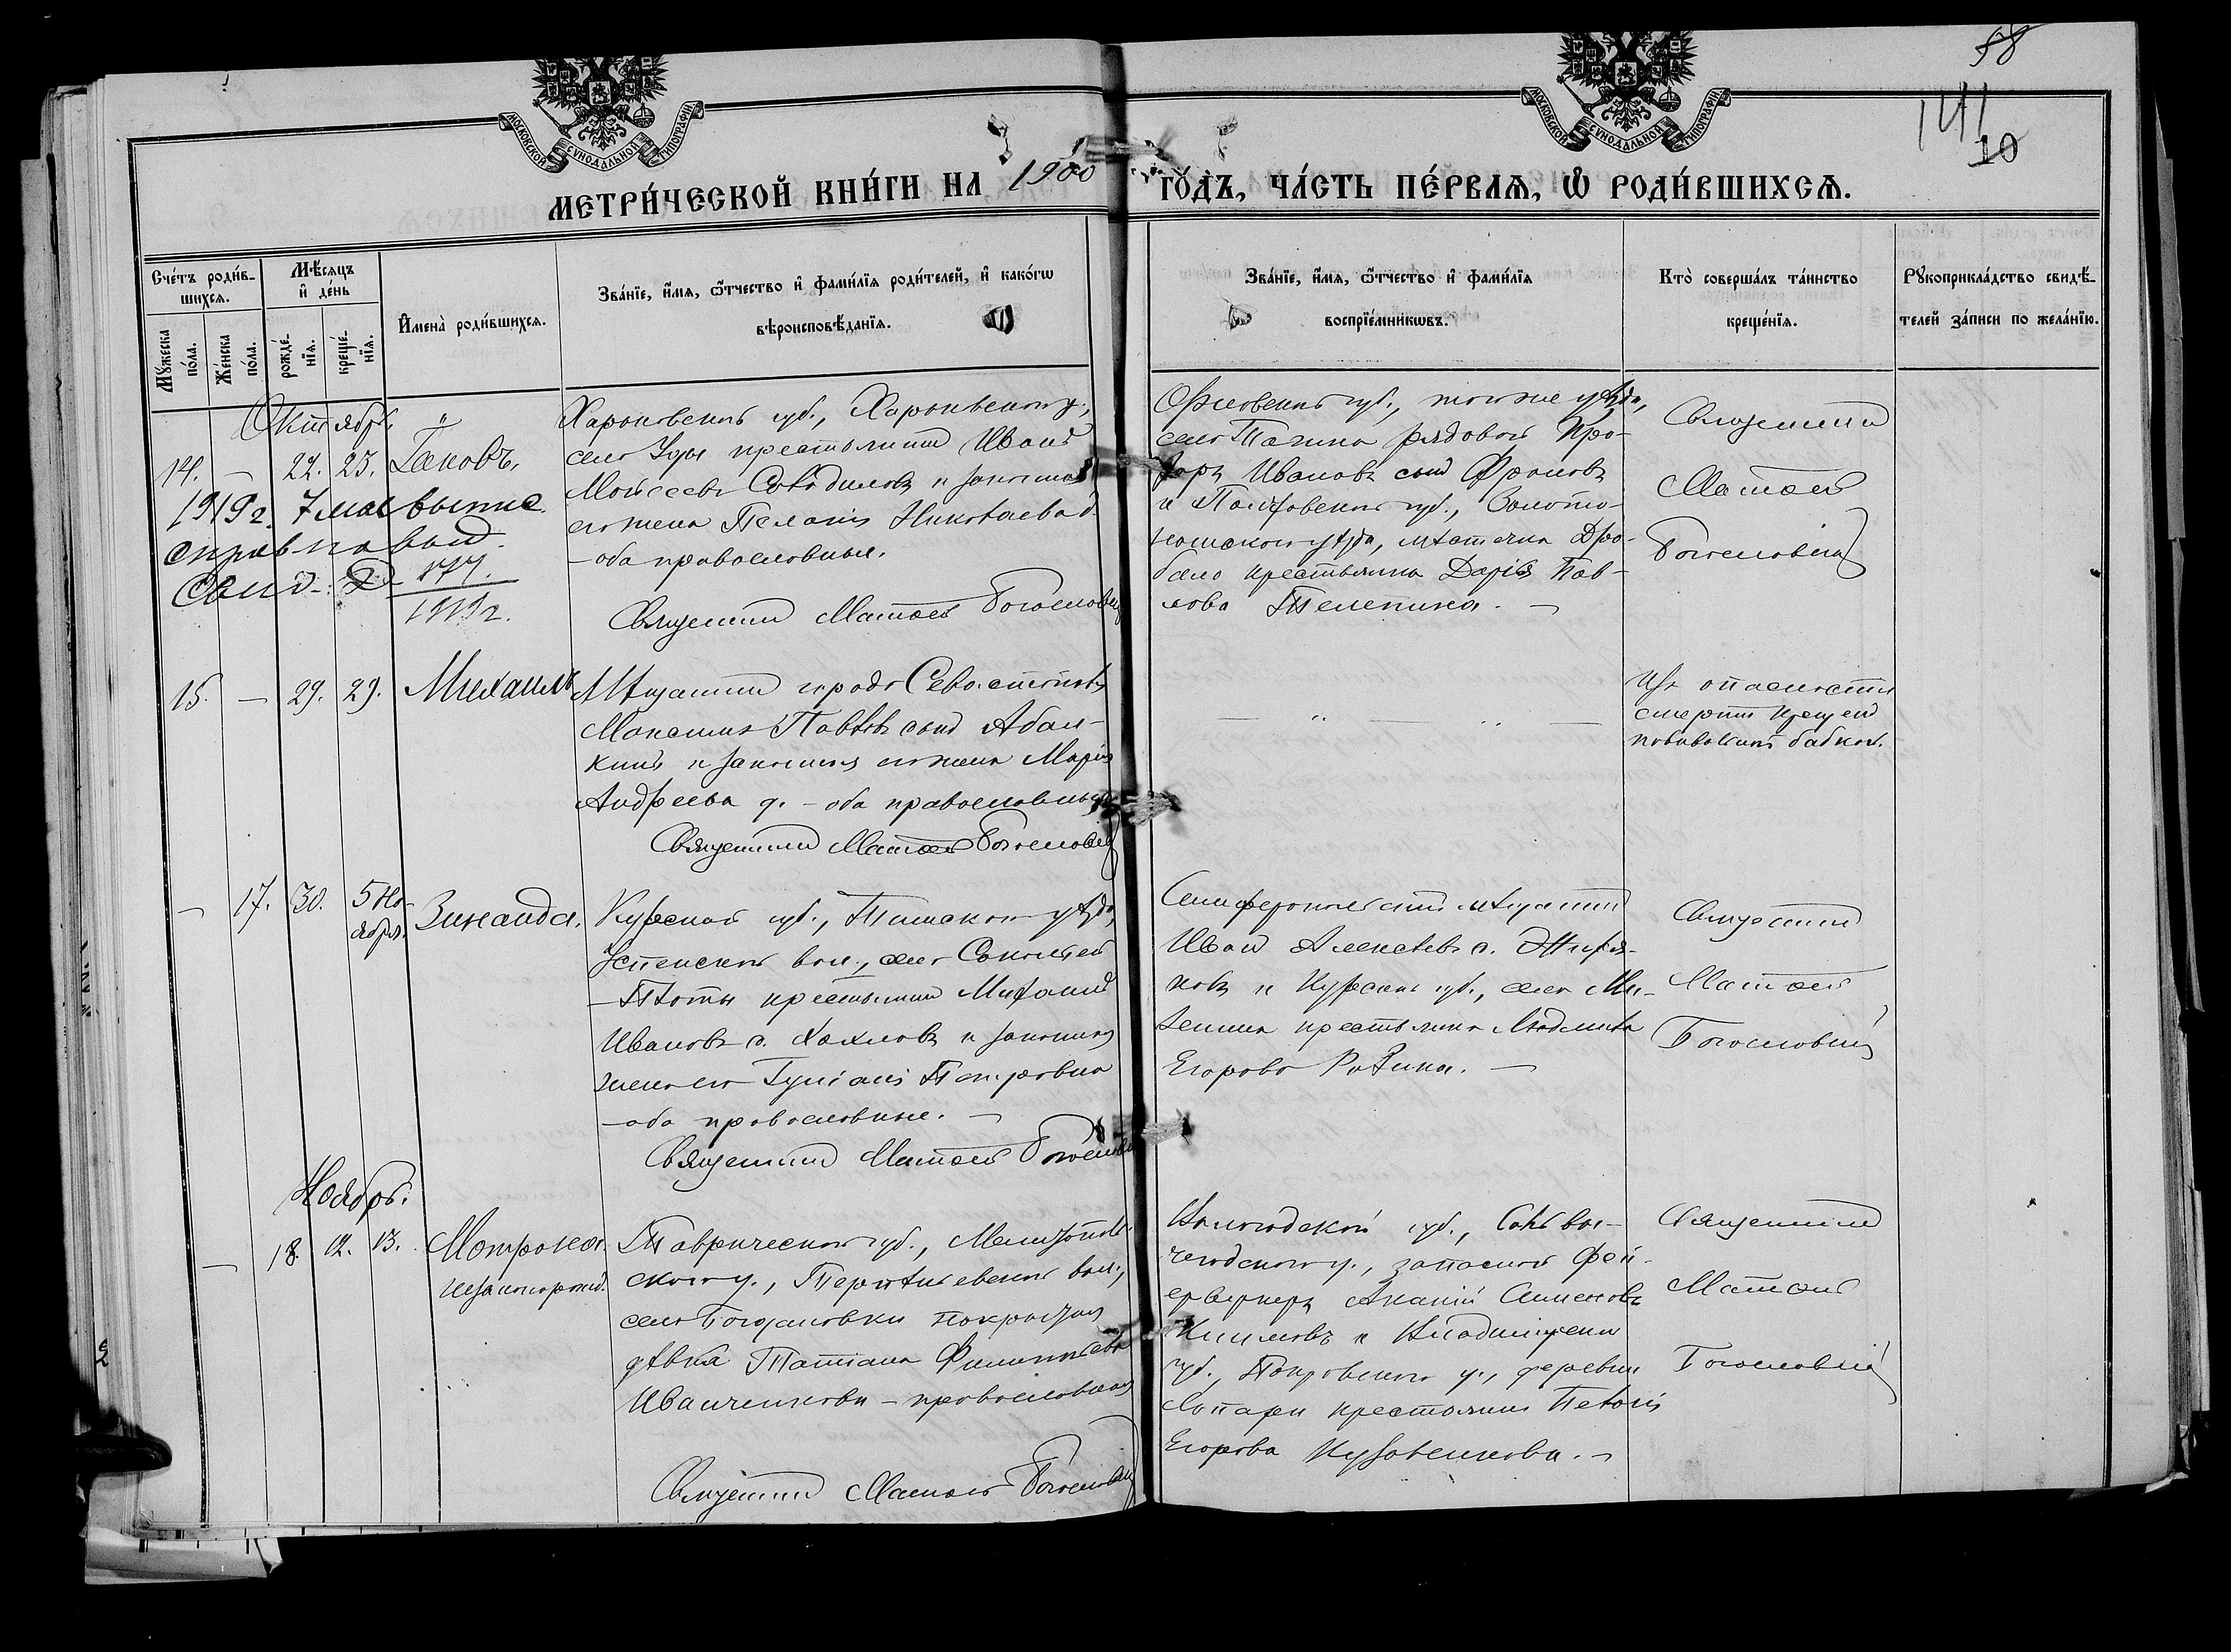 58
141
10
МОСКОВСКОЙ СѴНОДАЛЬНОЙ ТИПОГРАФІИ
МОСКОВСКОЙ СѴНОДАЛЬНОЙ ТИПОГРАФІИ
МЕТРИ́ЧЕСКОЙ КНИ́ГИ НА 1900 ГО́ДЪ, ЧА́СТЬ ПЕ́РВАЯ, Ѿ РОДИ́ВШИХСЯ.
Сче́тъ роди́в-
шихся.
Мꙋ́жеска
по́ла.
Же́нска
по́ла.
Мѣ́сяцъ
и҆ де́нь
рожде́-
нїя.
креще́-
нїя.
И҆мена̀ роди́вшихся.
Зва́нїе, и҆́мя, ѻ҆́тчество и҆ фами́лїя роди́телей, и҆ како́гѡ
вѣроисповѣ́данїя.
Зва́нїе, и҆́мя, ѻ҆́тчество и҆ фами́лїя
воспрїе́мникѡвъ.
Кто̀ соверша́лъ та́инство
креще́нїя.
Рꙋкоприкла́дство свидѣ́-
телей за́писи по жела́нїю.
Октябрь
14. — 22. 25. Іаковъ.
1919 г. 7 мая выпис
справка выд.
Свид.
1919 г.
Харьковской губ., Харьковскаго у.,
села Уды крестьянинъ Иванъ
Моисеевъ и законная
его жена Пелагія Николаева д.
— оба православные.
Священникъ Матѳей Богословскій
Орловской губ., того же уѣзда,
села Тагина рядовой Про-
хоръ Ивановъ сынъ Фроловъ
и Полтавской губ., Золото-
ношскаго уѣзда, мѣстечка Дра-
бово крестьянка Дарія Пав-
лова Телепина. —
Священникъ
Матѳей
Богословскій
15. — 29. 29. Михаилъ
Мѣщанинъ города Севастополя
Максимъ Павловъ сынъ Абаш-
кинъ и законная его жена Марія
Андреева д. — оба православные
Священникъ Матѳей Богословскій
— " — " —
Изъ опасности
смерти крещенъ
повивальной бабкой.
— 17. 30. 5 Но-
ября.
Зинаида.
Курской губ., Тимскаго уѣзда,
Успенской вол., села
— Плоты крестьянинъ Михаилъ
Ивановъ с. Хохловъ и законная
жена его Іуліанія Петровна
— оба православные. —
Священникъ Матѳей Богословскій
Симферопольскій мѣщанинъ
Иванъ Алексѣевъ с.
и Курской губ., села Ми-
хеина крестьянка Людмила
Егорова —
Священникъ
Матѳей
Богословскій
Ноябрь.
— 18. 12. 13. Матрона.
незаконорожд.
Таврической губ., Мелитополь-
скаго у., Терпѣньевской вол.,
села Богдановки
дѣвка Татіана Филиппьева
Иванченкова — православная
Священникъ Матѳей Богословскій
Вологодской губ., Сольвы-
чегодскаго у., запасной фей-
ерверкеръ Ананій Симеоновъ
и Владимірской
губ., Покровскаго у., деревни
крестьянка Пелагія
Егорова Кузовенкова. —
Священникъ
Матѳей
Богословскій